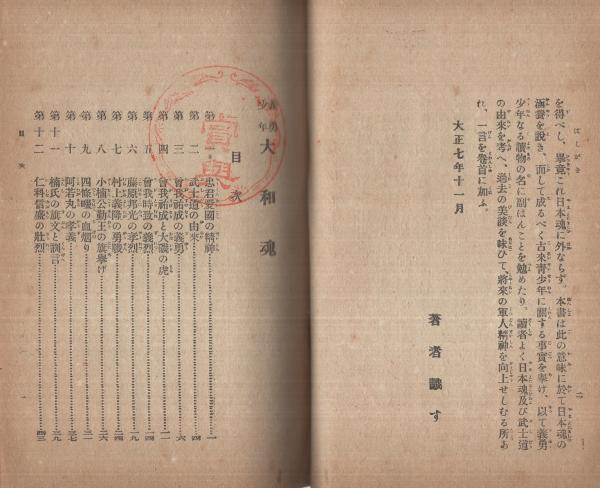 はしがき
を得べし、畢竟これ日本魂に外ならず。本書は此の意味に於て日本魂の
涵養を說き、而して成るべく古來靑少年に關する事實を擧げ、以て義勇
少年なる讀物の名に副はんことを勉めたり。讀者よく日本魂及び武士道
の由來を考へ、過去の美談を味ひて、將來の軍人精神を向上せしむる所あ
れ、一言を卷首に加ふ。
大正七年十一月
著者識す
二
義勇少年大和魂
目次
第一 忠君愛國の精神 一
第二 武士道の由來 四
第三 曾我祐成の義勇 六
第四 曾我祐成と大磯の虎 一一
第五 曾我時致の義烈 一四
第六 藤原邦光の孝烈 一九
第七 村上義隆の勇竣 二四
第八 小楠公勤王の旗擧げ 二六
第九 四條畷の血煙り 三一
第十 阿若丸の孝義 三七
第十一 楠氏の旗文と訓言 三九
第十二 仁科信盛の壯烈 四三
目次
一
賞與